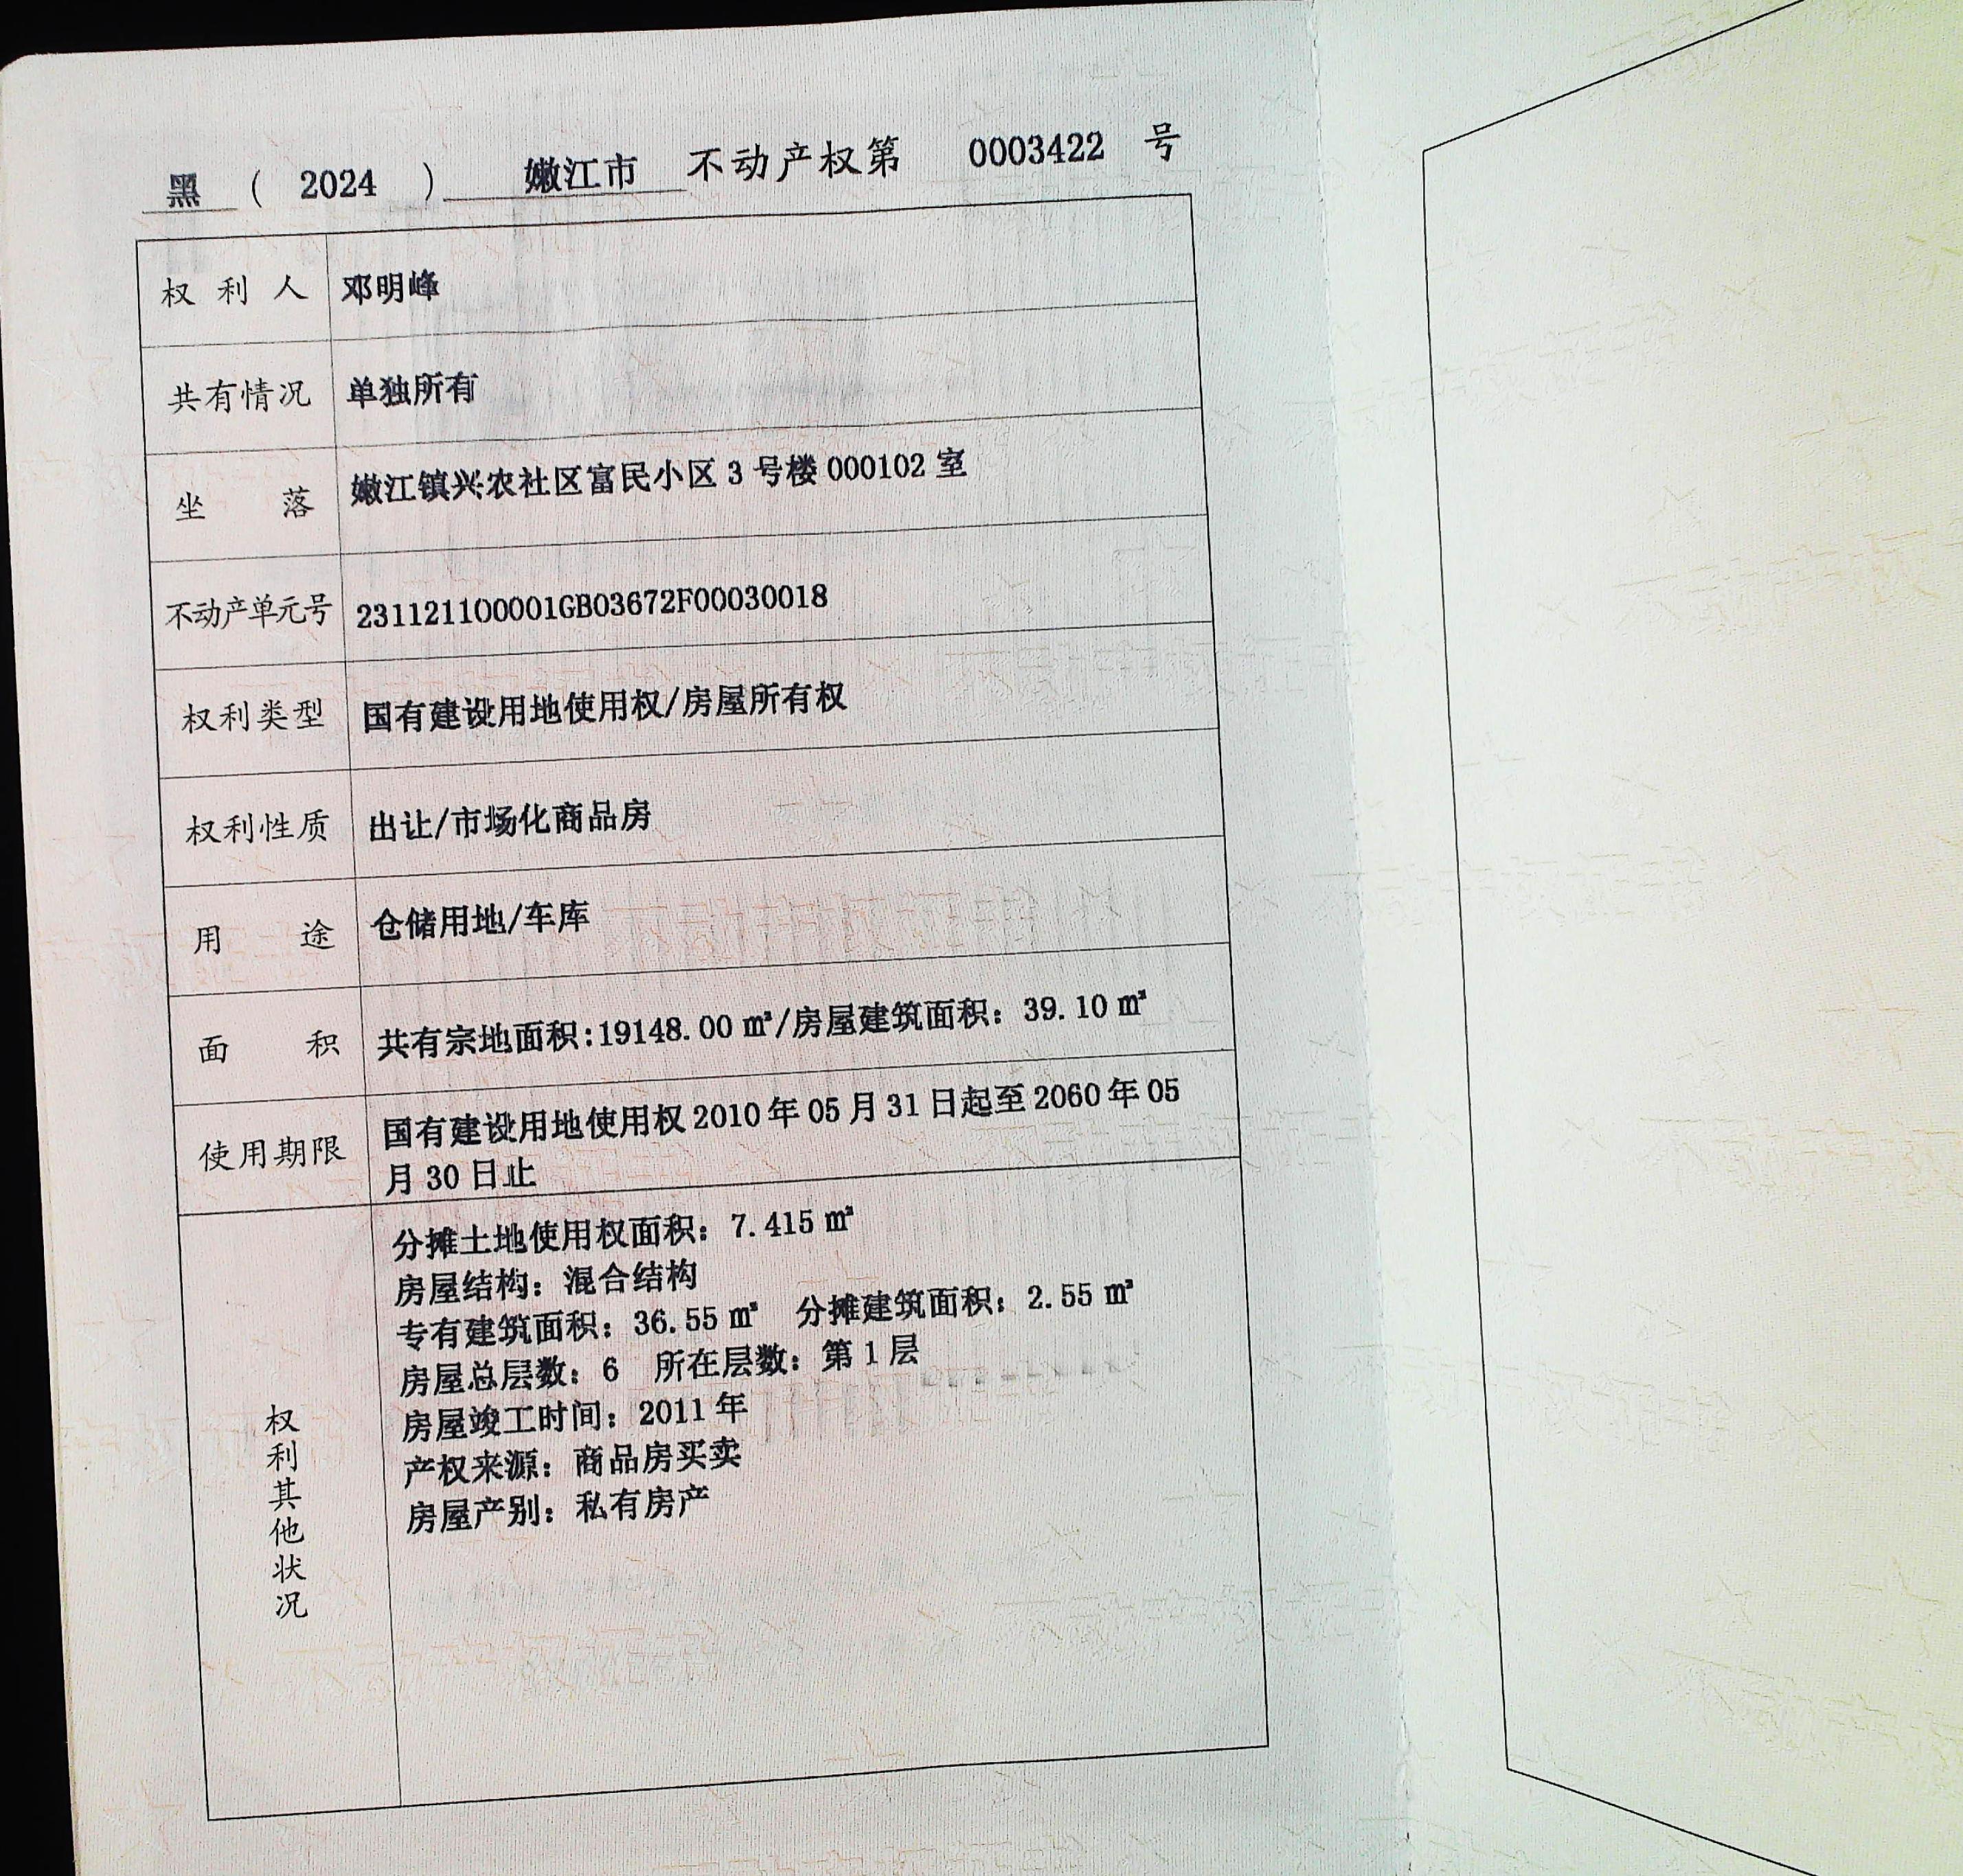 黑 ( 2024 ) 嫩江市 不动产权第 0003422 号
权利人 邓明峰
共有情况 单独所有
坐落 嫩江镇兴农社区富民小区 3 号楼 000102 室
不动产单元号 231121100001GB03672F00030018
权利类型 国有建设用地使用权/房屋所有权
权利性质 出让/市场化商品房
用途 仓储用地/车库
面积 共有宗地面积:19148.00 ㎡/房屋建筑面积: 39.10 ㎡
使用期限 国有建设用地使用权 2010 年 05 月 31 日起至 2060 年 05
月 30 日止
权利其他状况
分摊土地使用权面积: 7.415 ㎡
房屋结构: 混合结构
专有建筑面积: 36.55 ㎡ 分摊建筑面积: 2.55 ㎡
房屋总层数: 6 所在层数: 第 1 层
房屋竣工时间: 2011 年
产权来源: 商品房买卖
房屋产别: 私有房产